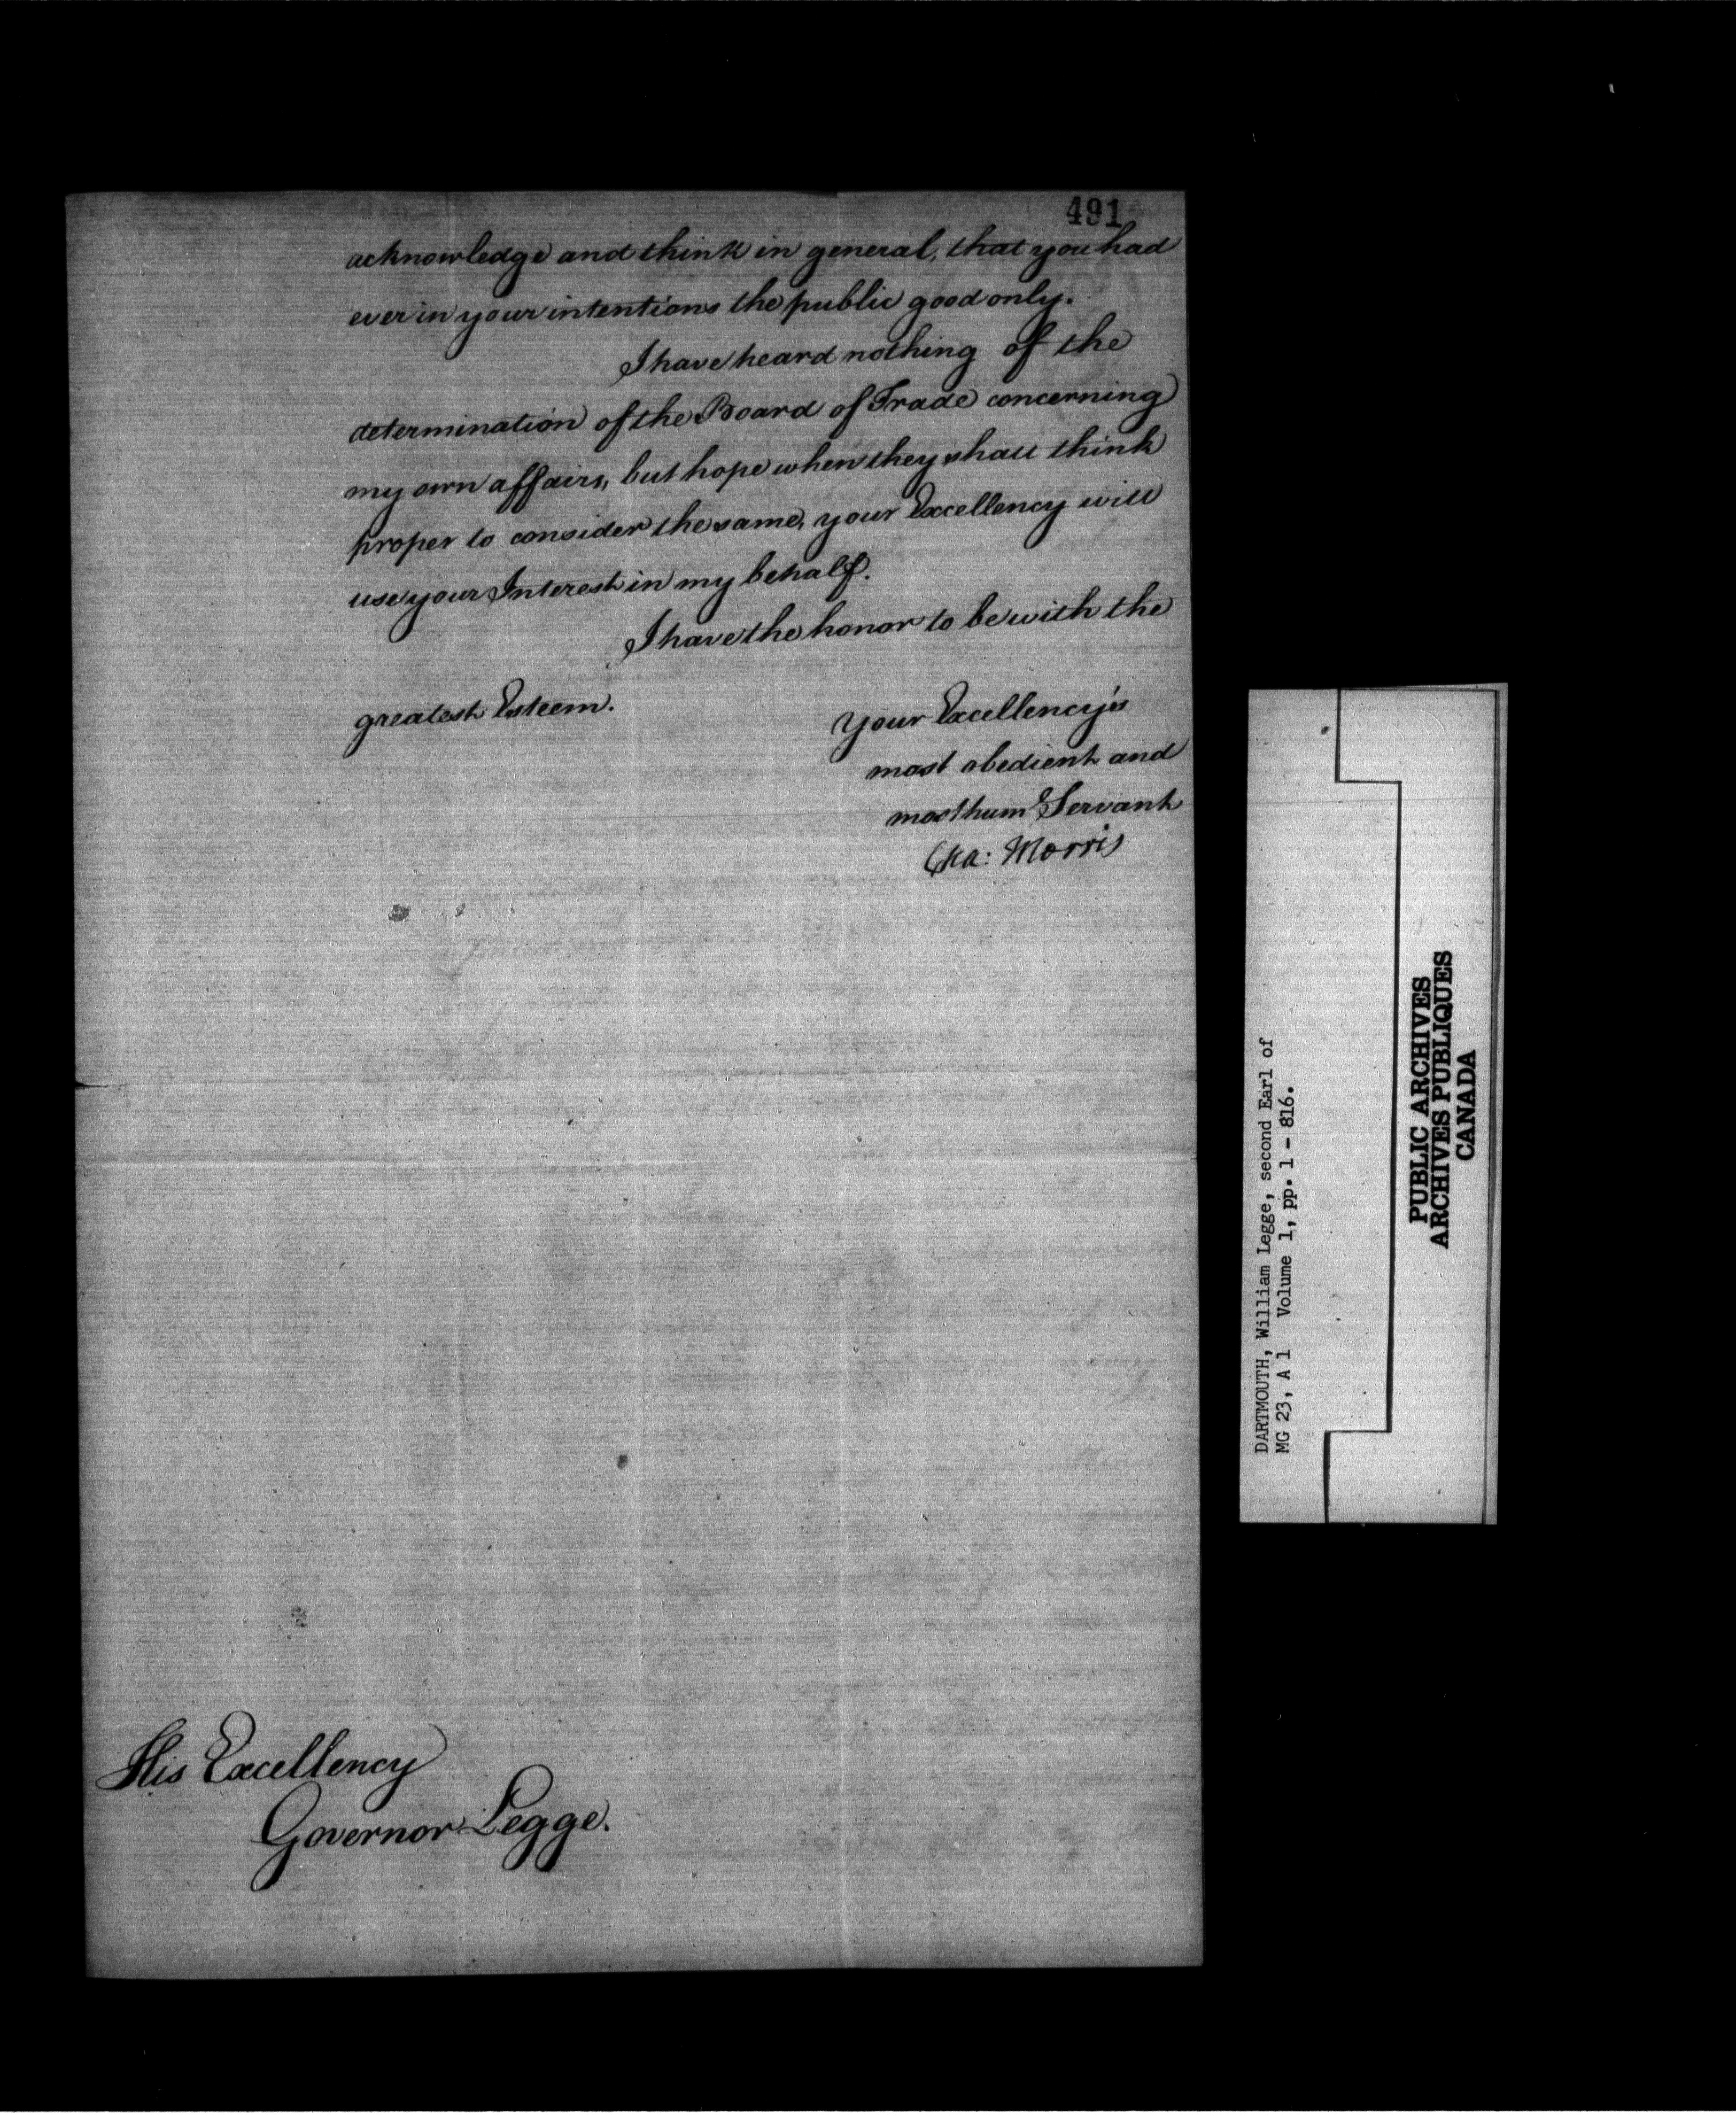 491
acknowledge and think in general, that you had
ever in your intentions the public good only.
I have heard nothing of the
determination of the Board of Trade concerning
my own affairs, but hope when they shall think
proper to consider the same, your Excellency will
use your Interest in my behalf.
I have the honor to be with the
greatest Esteem.
Your Excellency's
most obedient and
most humᵉ Servant
Cha: Morris
His Excellency
Governor Legge.
DARTMOUTH, William Legge, second Earl of
MG 23, A 1 Volume 1, pp. 1 - 816.
PUBLIC ARCHIVES
ARCHIVES PUBLIQUES
CANADA